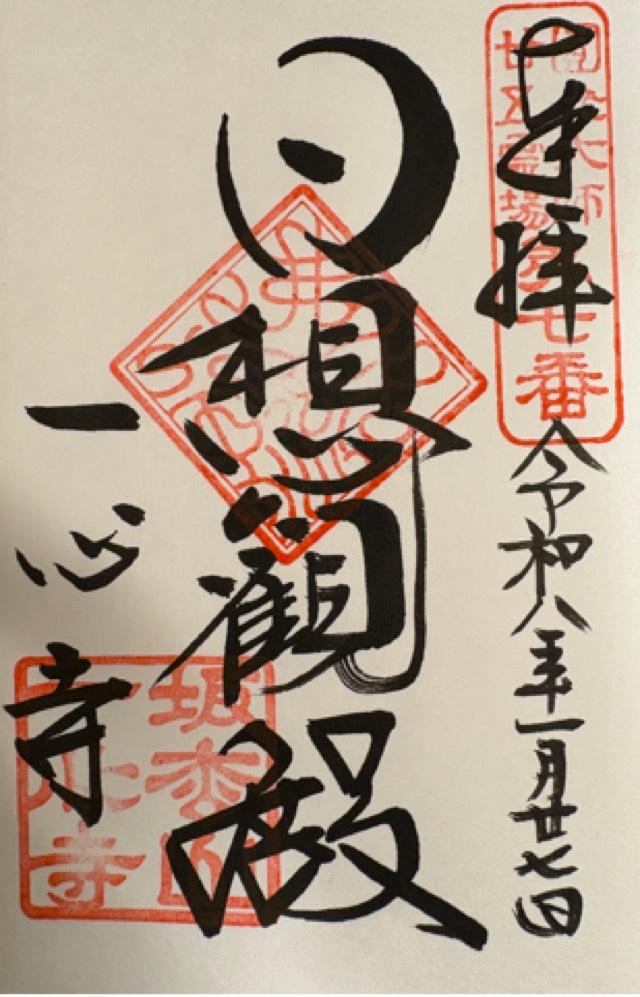 奉拝
令和八年一月廿七日
圓光大師
廿五霊場第七番
日想観殿
一心寺
坂松山
一心寺